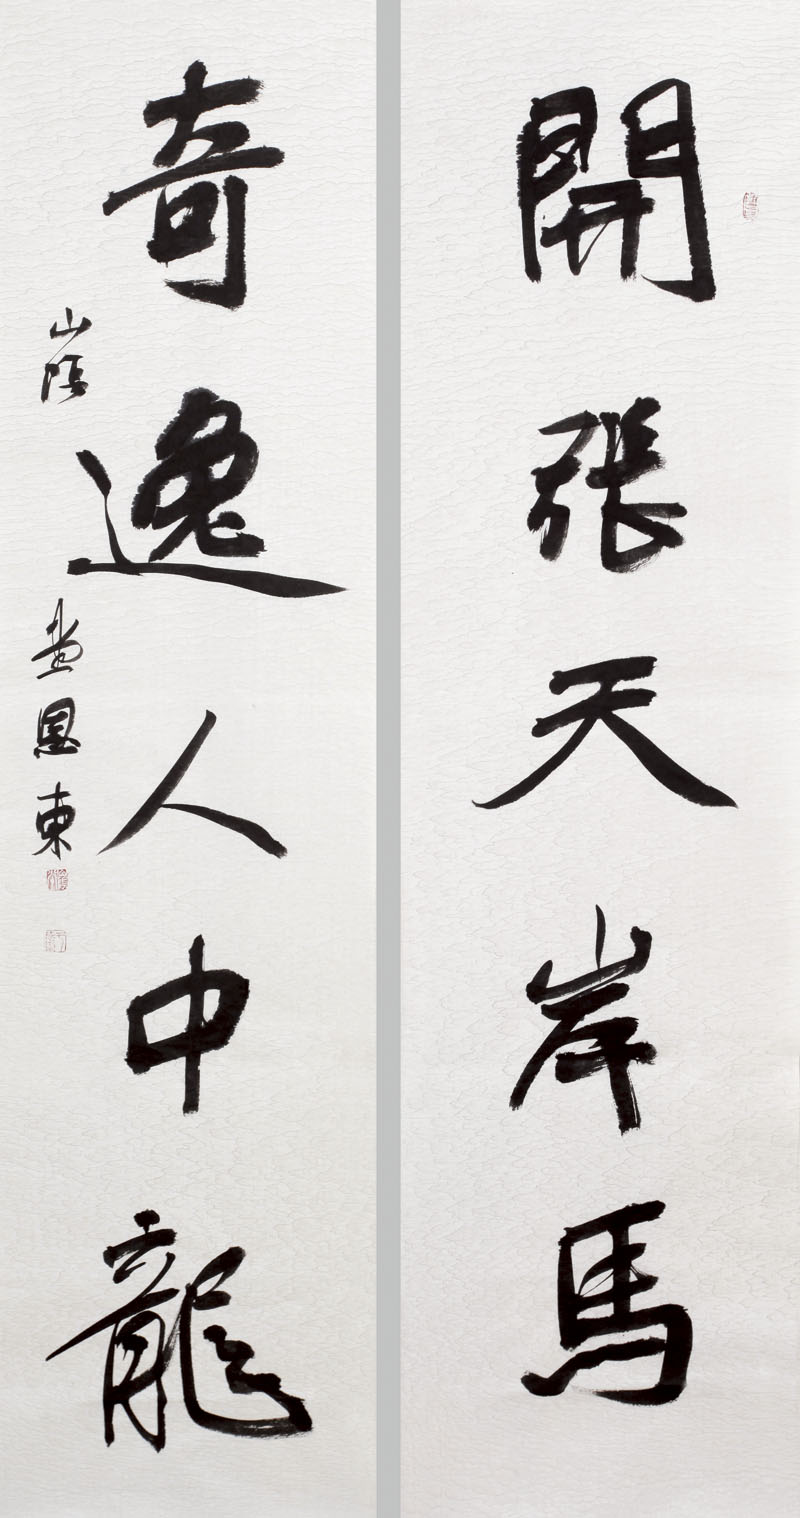 開張天岸馬
奇逸人中龍
山陰
恩東